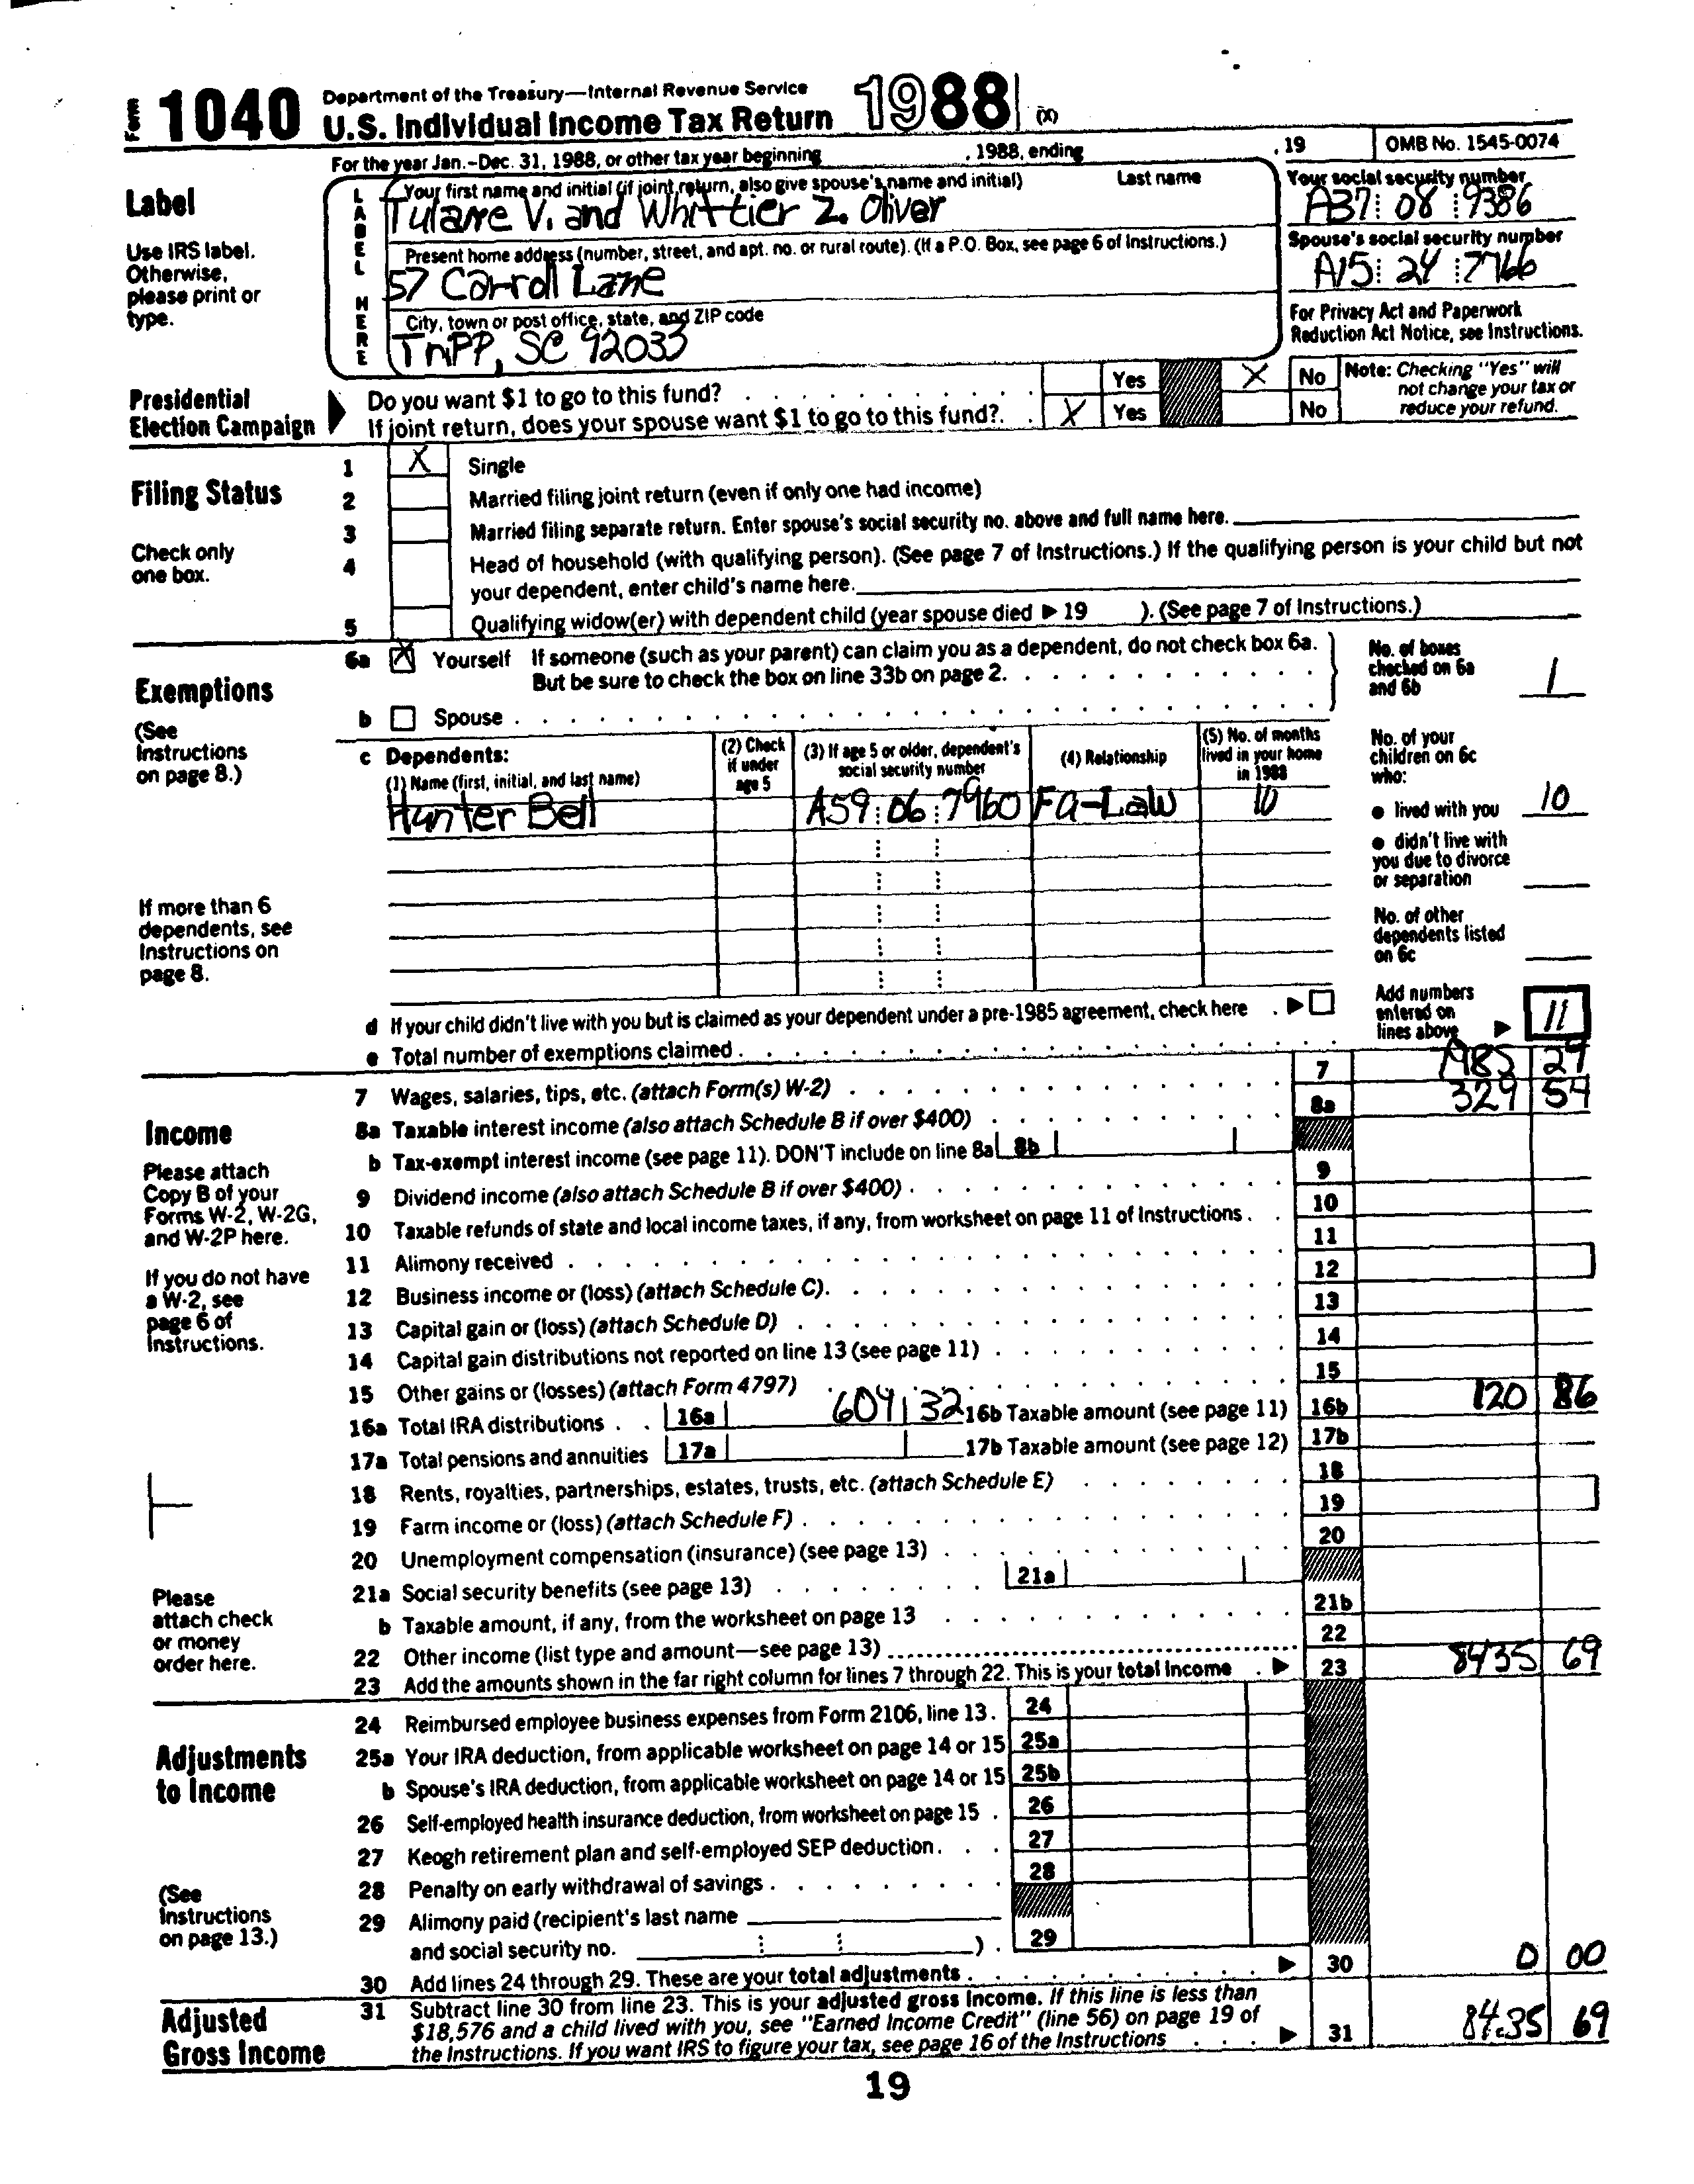 Form 1040 Department of the Treasury—Internal Revenue Service
U.S. Individual Income Tax Return 1988 (X)
For the year Jan.–Dec. 31, 1988, or other tax year beginning , 1988, ending , 19 OMB No. 1545-0074
Label
Use IRS label.
Otherwise,
please print or
type.
LABEL HERE
Your first name and initial (if joint return, also give spouse's name and initial) Last name
Tulare V. and Whittier Z. Oliver
Present home address (number, street, and apt. no. or rural route). (If a P.O. Box, see page 6 of Instructions.)
57 Carroll Lane
City, town or post office, state, and ZIP code
Tripp, SC 92033
Your social security number
A37 08 9386
Spouse's social security number
A15 24 7766
For Privacy Act and Paperwork
Reduction Act Notice, see Instructions.
Presidential
Election Campaign
Do you want $1 to go to this fund? Yes X No
If joint return, does your spouse want $1 to go to this fund? X Yes No
Note: Checking "Yes" will
not change your tax or
reduce your refund.
Filing Status
Check only
one box.
1 X Single
2 Married filing joint return (even if only one had income)
3 Married filing separate return. Enter spouse's social security no. above and full name here.
4 Head of household (with qualifying person). (See page 7 of Instructions.) If the qualifying person is your child but not
your dependent, enter child's name here.
5 Qualifying widow(er) with dependent child (year spouse died ▶ 19 ). (See page 7 of Instructions.)
Exemptions
(See
Instructions
on page 8.)
If more than 6
dependents, see
Instructions on
page 8.
6a X Yourself If someone (such as your parent) can claim you as a dependent, do not check box 6a.
But be sure to check the box on line 33b on page 2.
b Spouse
No. of boxes
checked on 6a
and 6b 1
c Dependents:
(1) Name (first, initial, and last name)
(2) Check
if under
age 5
(3) If age 5 or older, dependent's
social security number
(4) Relationship
(5) No. of months
lived in your home
in 1988
Hunter Bell A59 06 7960 Fa-Law 10
No. of your
children on 6c
who:
● lived with you 10
● didn't live with
you due to divorce
or separation
No. of other
dependents listed
on 6c
d If your child didn't live with you but is claimed as your dependent under a pre-1985 agreement, check here ▶
e Total number of exemptions claimed
Add numbers
entered on
lines above ▶ 11
Income
Please attach
Copy B of your
Forms W-2, W-2G,
and W-2P here.
If you do not have
a W-2, see
page 6 of
Instructions.
Please
attach check
or money
order here.
7 Wages, salaries, tips, etc. (attach Form(s) W-2) 7 7985 29
8a Taxable interest income (also attach Schedule B if over $400) 8a 329 54
b Tax-exempt interest income (see page 11). DON'T include on line 8a 8b
9 Dividend income (also attach Schedule B if over $400) 9
10 Taxable refunds of state and local income taxes, if any, from worksheet on page 11 of Instructions 10
11 Alimony received 11
12 Business income or (loss) (attach Schedule C) 12
13 Capital gain or (loss) (attach Schedule D) 13
14 Capital gain distributions not reported on line 13 (see page 11) 14
15 Other gains or (losses) (attach Form 4797) 15
16a Total IRA distributions 16a 604 32 16b Taxable amount (see page 11) 16b 120 86
17a Total pensions and annuities 17a 17b Taxable amount (see page 12) 17b
18 Rents, royalties, partnerships, estates, trusts, etc. (attach Schedule E) 18
19 Farm income or (loss) (attach Schedule F) 19
20 Unemployment compensation (insurance) (see page 13) 20
21a Social security benefits (see page 13) 21a
b Taxable amount, if any, from the worksheet on page 13 21b
22 Other income (list type and amount—see page 13) 22
23 Add the amounts shown in the far right column for lines 7 through 22. This is your total income ▶ 23 8435 69
Adjustments
to Income
(See
Instructions
on page 13.)
24 Reimbursed employee business expenses from Form 2106, line 13. 24
25a Your IRA deduction, from applicable worksheet on page 14 or 15 25a
b Spouse's IRA deduction, from applicable worksheet on page 14 or 15 25b
26 Self-employed health insurance deduction, from worksheet on page 15 26
27 Keogh retirement plan and self-employed SEP deduction 27
28 Penalty on early withdrawal of savings 28
29 Alimony paid (recipient's last name
and social security no. ) 29
30 Add lines 24 through 29. These are your total adjustments ▶ 30 0 00
Adjusted
Gross Income
31 Subtract line 30 from line 23. This is your adjusted gross income. If this line is less than
$18,576 and a child lived with you, see "Earned Income Credit" (line 56) on page 19 of
the Instructions. If you want IRS to figure your tax, see page 16 of the Instructions ▶ 31 8435 69
19